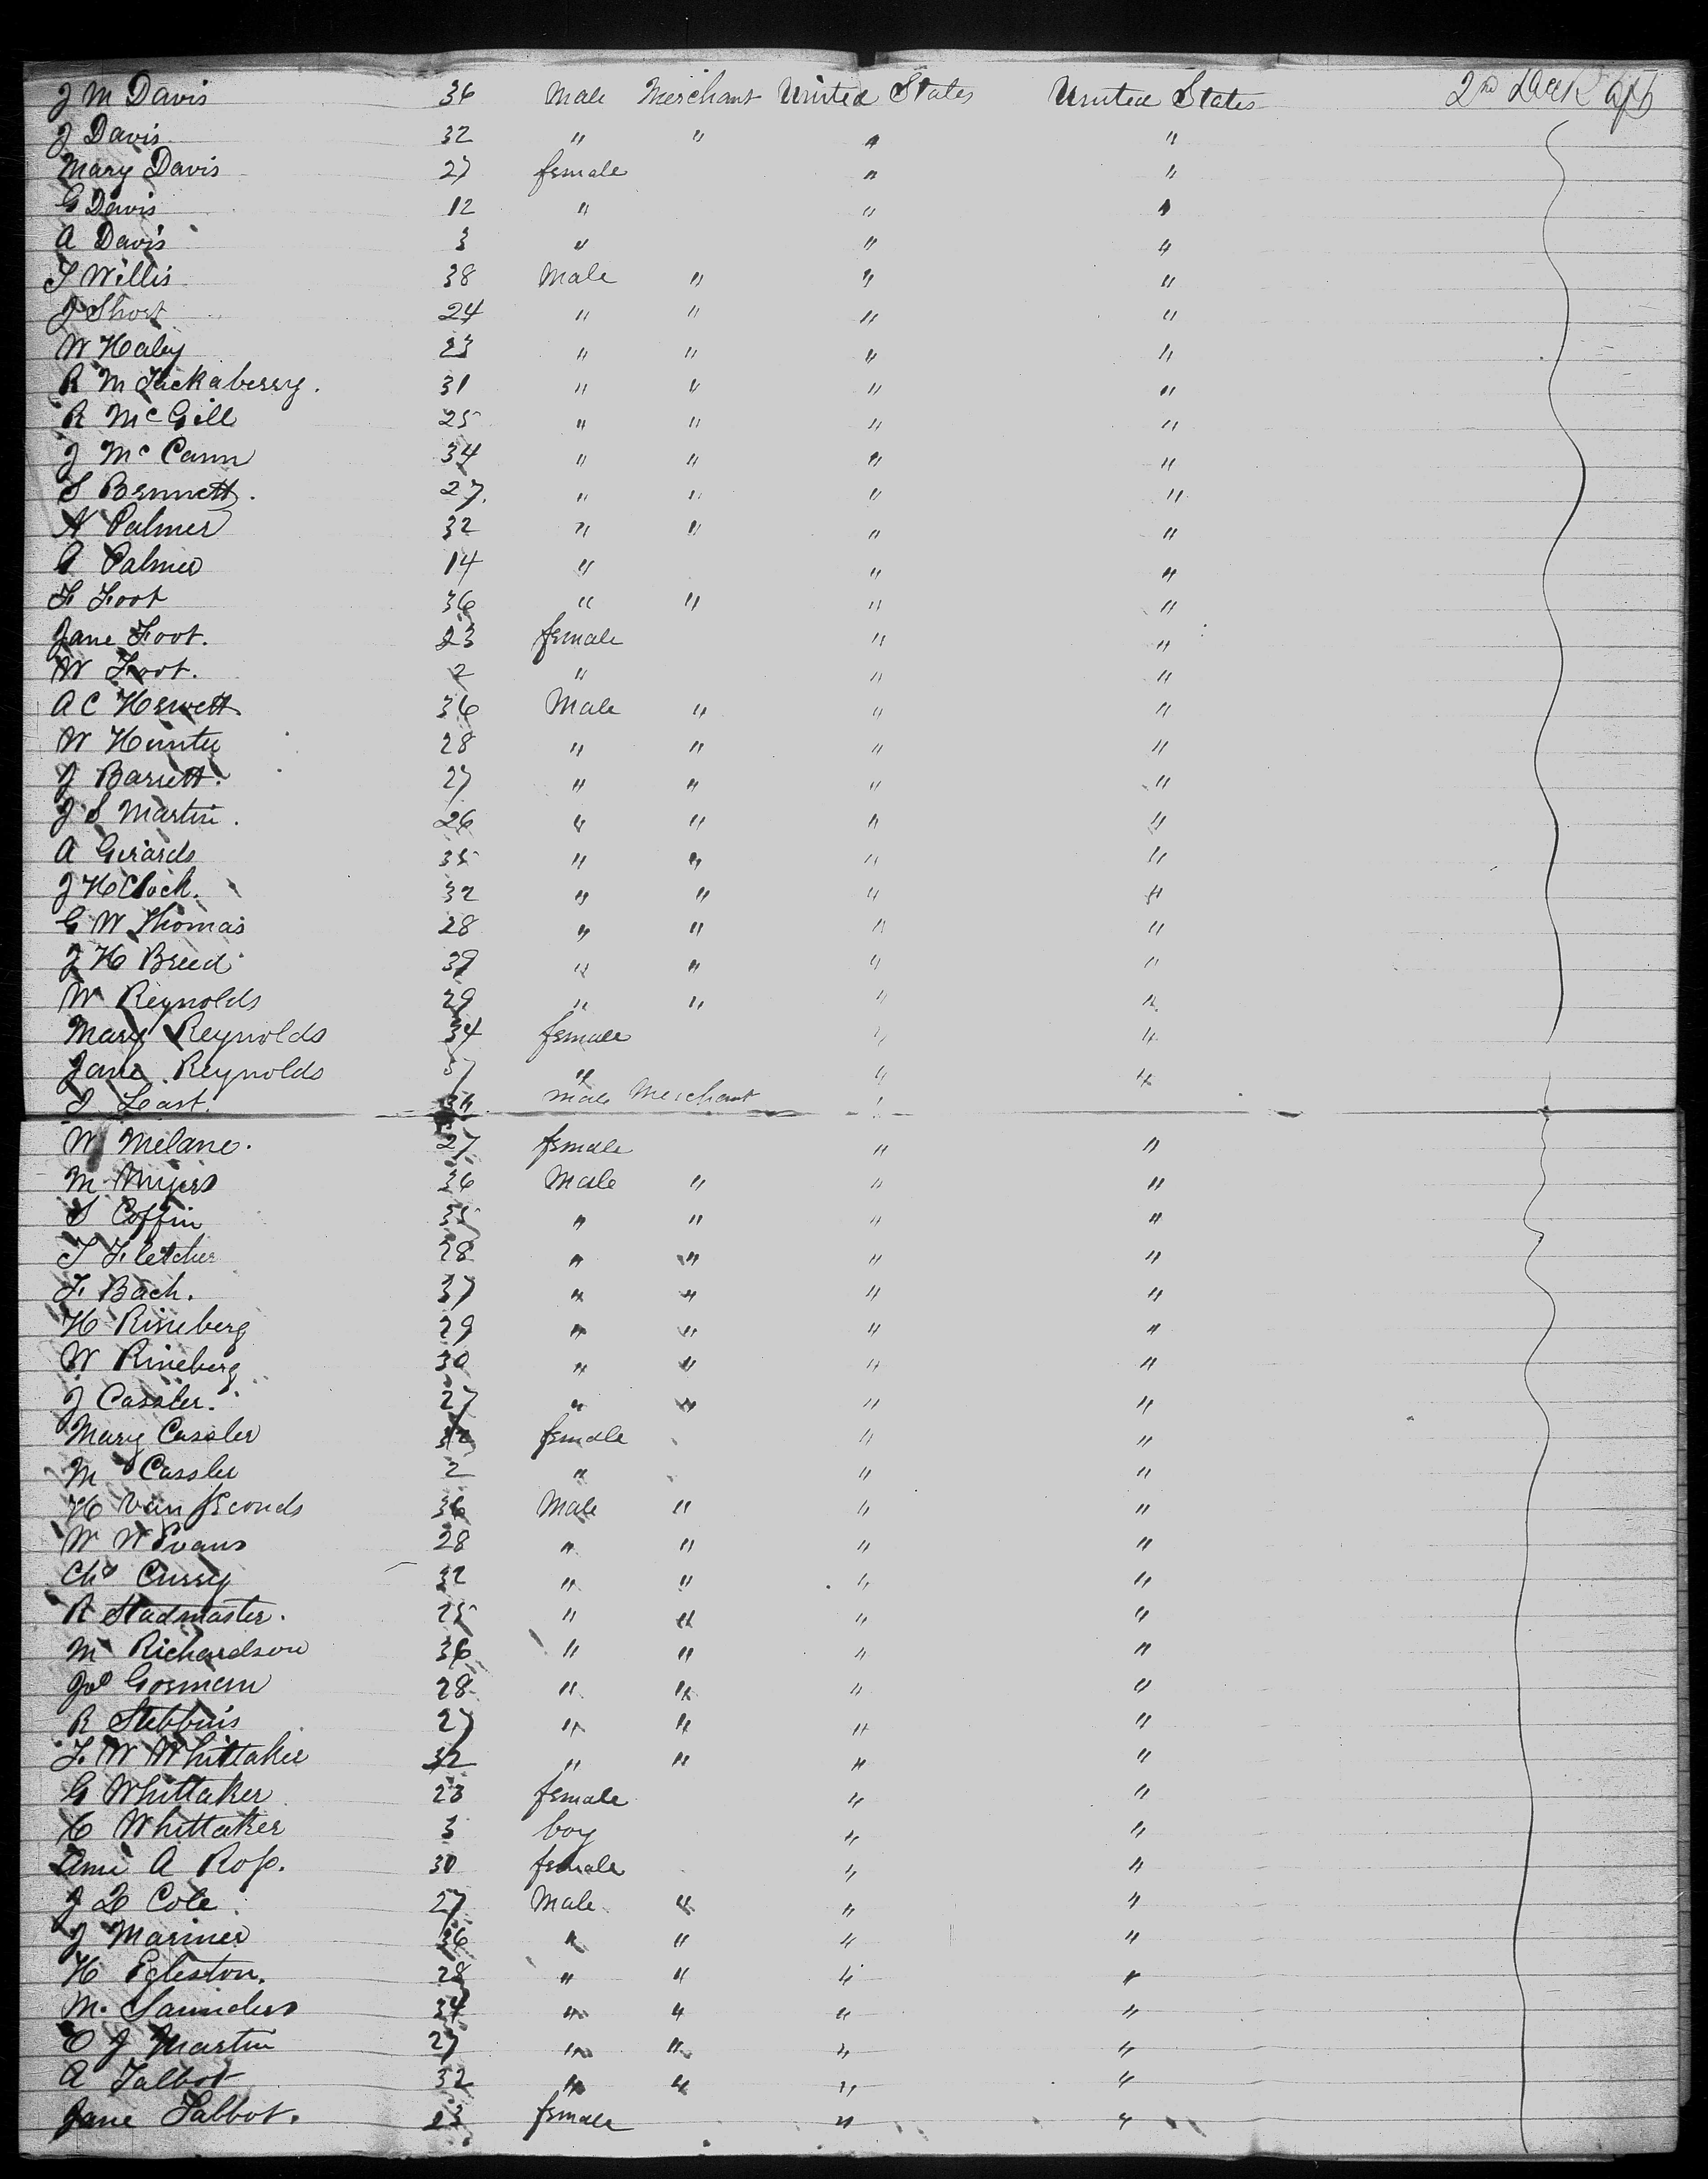 J M Davis 36 Male Merchant United States United States 2nd Deck aft
J Davis 32 " " " "
Mary Davis 27 female " "
G Davis 12 " " "
A Davis 3 " " "
T Willis 38 Male " " "
J Short 24 " " " "
W Haley 23 " " " "
R M Tackaberry. 31 " " " "
R McGill 25 " " " "
J McCann 34 " " " "
S Bennett. 27. " " " "
N Palmer 32 " " " "
Palmer 14 " " "
F Foot 36 " " " "
Jane Foot. 23 female " "
W Foot. 2 " " "
A C Hewett 36 Male " " "
W Hunter 28 " " " "
J Barrett. 27 " " " "
J S Martin. 26 " " " "
A Girards 35 " " " "
J H Clock. 32 " " " "
G W Thomas 28 " " " "
J H Breed 39 " " " "
W Reynolds 29 " " " "
Mary Reynolds 34 female " "
Jane Reynolds " " "
East. male Merchant "
W Melane. 27 female " "
M Myers 36 Male " " "
S Coffin 35 " " " "
T Fletcher 28 " " " "
F. Bach. 37 " " " "
H Rineberg 29 " " " "
W Rineberg 30 " " " "
J Cassler. 27 " " " "
Mary Cassler female " "
M Cassler 2 " " "
H Van 36 Male " " "
W W Evans 28 " " " "
Chs Curry 32 " " " "
R Stadmaster. 25 " " " "
M Richardson 36 " " " "
Jos Gorman 28 " " " "
R Stebbins 27 " " " "
F. W Whittaker 32 " " " "
G Whittaker 23 female " "
C Whittaker 3 boy " "
Ann A Ross. 30 female " "
J L Cole 27 Male " " "
J Mariner 36 " " " "
H Egleston. 28 " " " "
M. Saunders 34 " " " "
O J Martin 27 " " " "
A Talbot 32 " " " "
Jane Talbot. 23 female " "